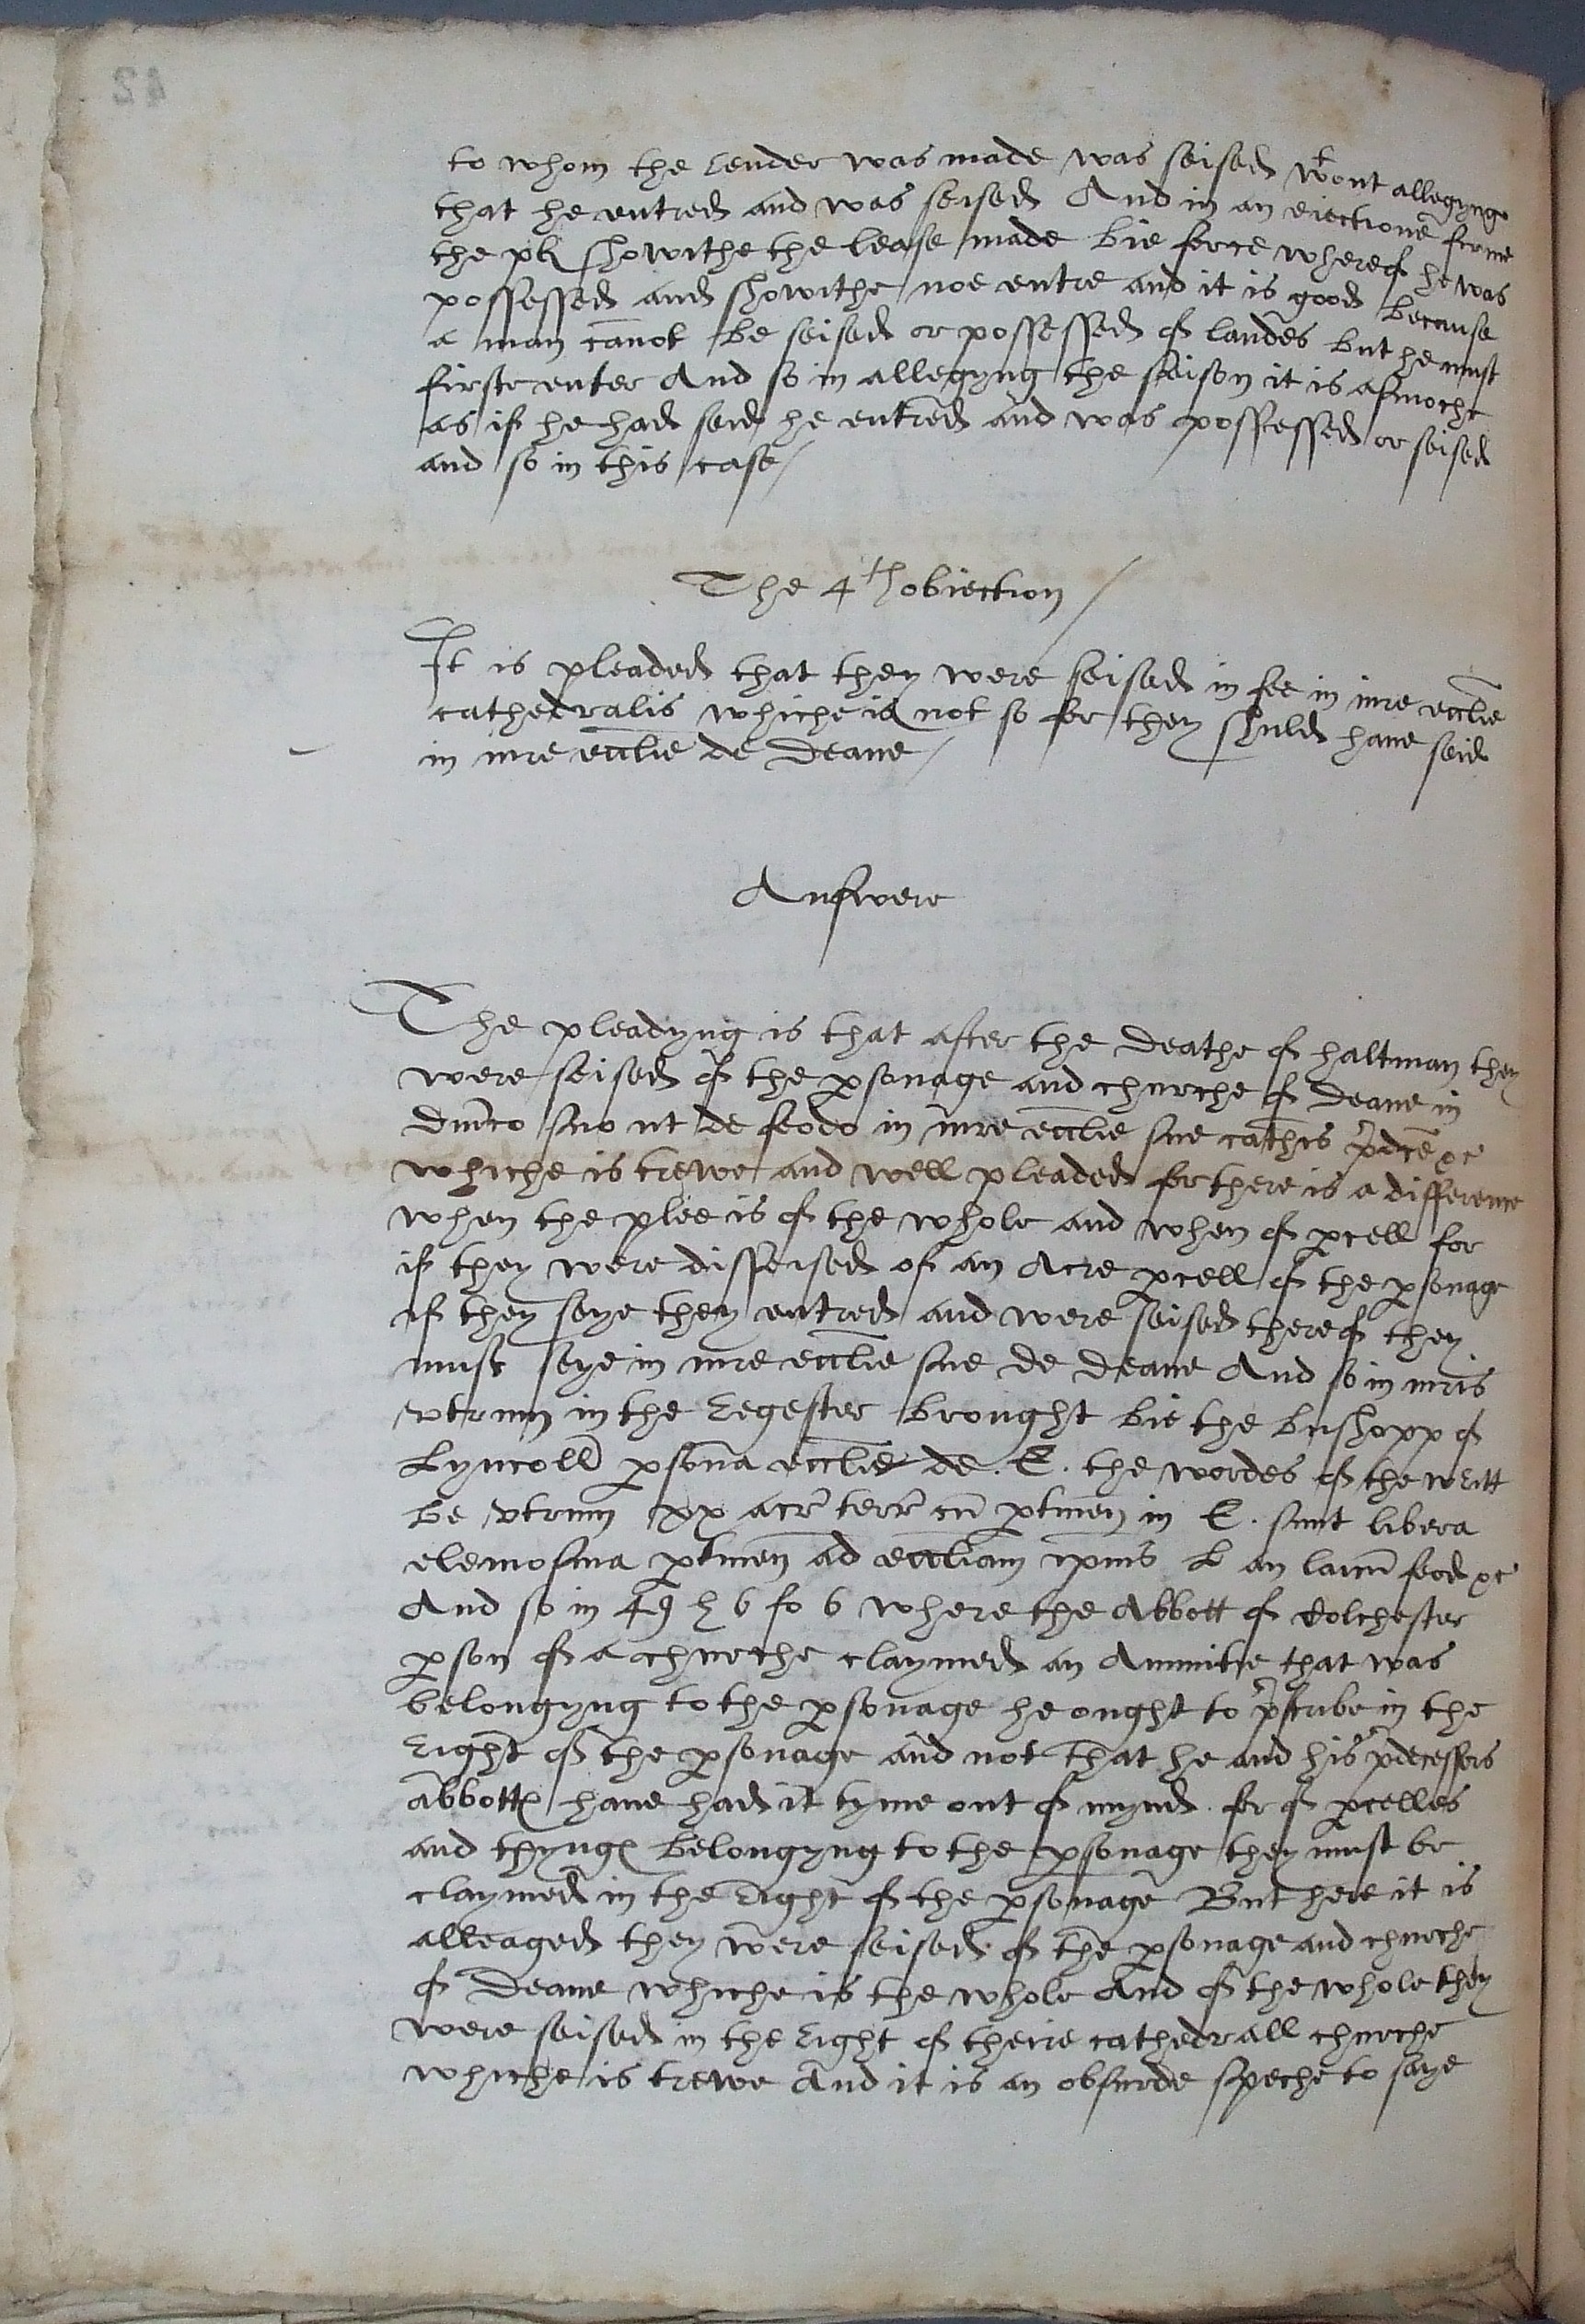 to whom the lender was made was seised wtout allegyng
that he entred and was seised And in an eiectione firme
the pl showithe the lease made bie force whereof he was
possessed and showithe noe entre and it is good because
a man cānot be seised or possessed of landes but he must
firste enter And so in allegyng the seison it is asmoche
as if he had seid he entred and was possessed or seised
and so in this case /
The 4th obiection /
It is pleaded that they were seised in fee in iure ecclie
cathedralis whiche is not so for they shuld haue seid
in iure ecclie de Deane /
Answere
The pleadyng is that after the deathe of haltman they
were seised of the psonage and churche of Deane in
dnico suo ut de feodo in iure ecclie sue cathis pdce &c
whiche is trewe and well pleaded for there is a difference
when the plee is of the whole and when of pcell for
if they were disseised of an Acre pcell of the psonage
if they seye they entred and were seised thereof they
must seye in iure ecclie sue de Deane And so in iuris
vtrum in the Regester brought bie the bushopp of
Lyncoll psona ecclie de . E . the wordes of the writt
be vtrum xx acr terr cu ptinen in E . sunt libera
elemosina ptinen ad eccliam ipius L an laicu feod &c
And so in 49 h 6 fo 6 where the Abbott of Colchester
pson of a churche claymed an Annuitie that was
belongyng to the psonage he ought to pscribe in the
Right of the psonage and not that he and his pdecessors
abbottes haue had it tyme out of mynd . for of pcelles
and thynges belongyng to the psonage they must be
claymed in the Right of the psonage But here it is
alleaged they were seised of the psonage and churche
of Deane whiche is the whole And of the whole they
were seised in the Right of theire cathedrall churche
whiche is trewe And it is an obsurde speche to saye
42